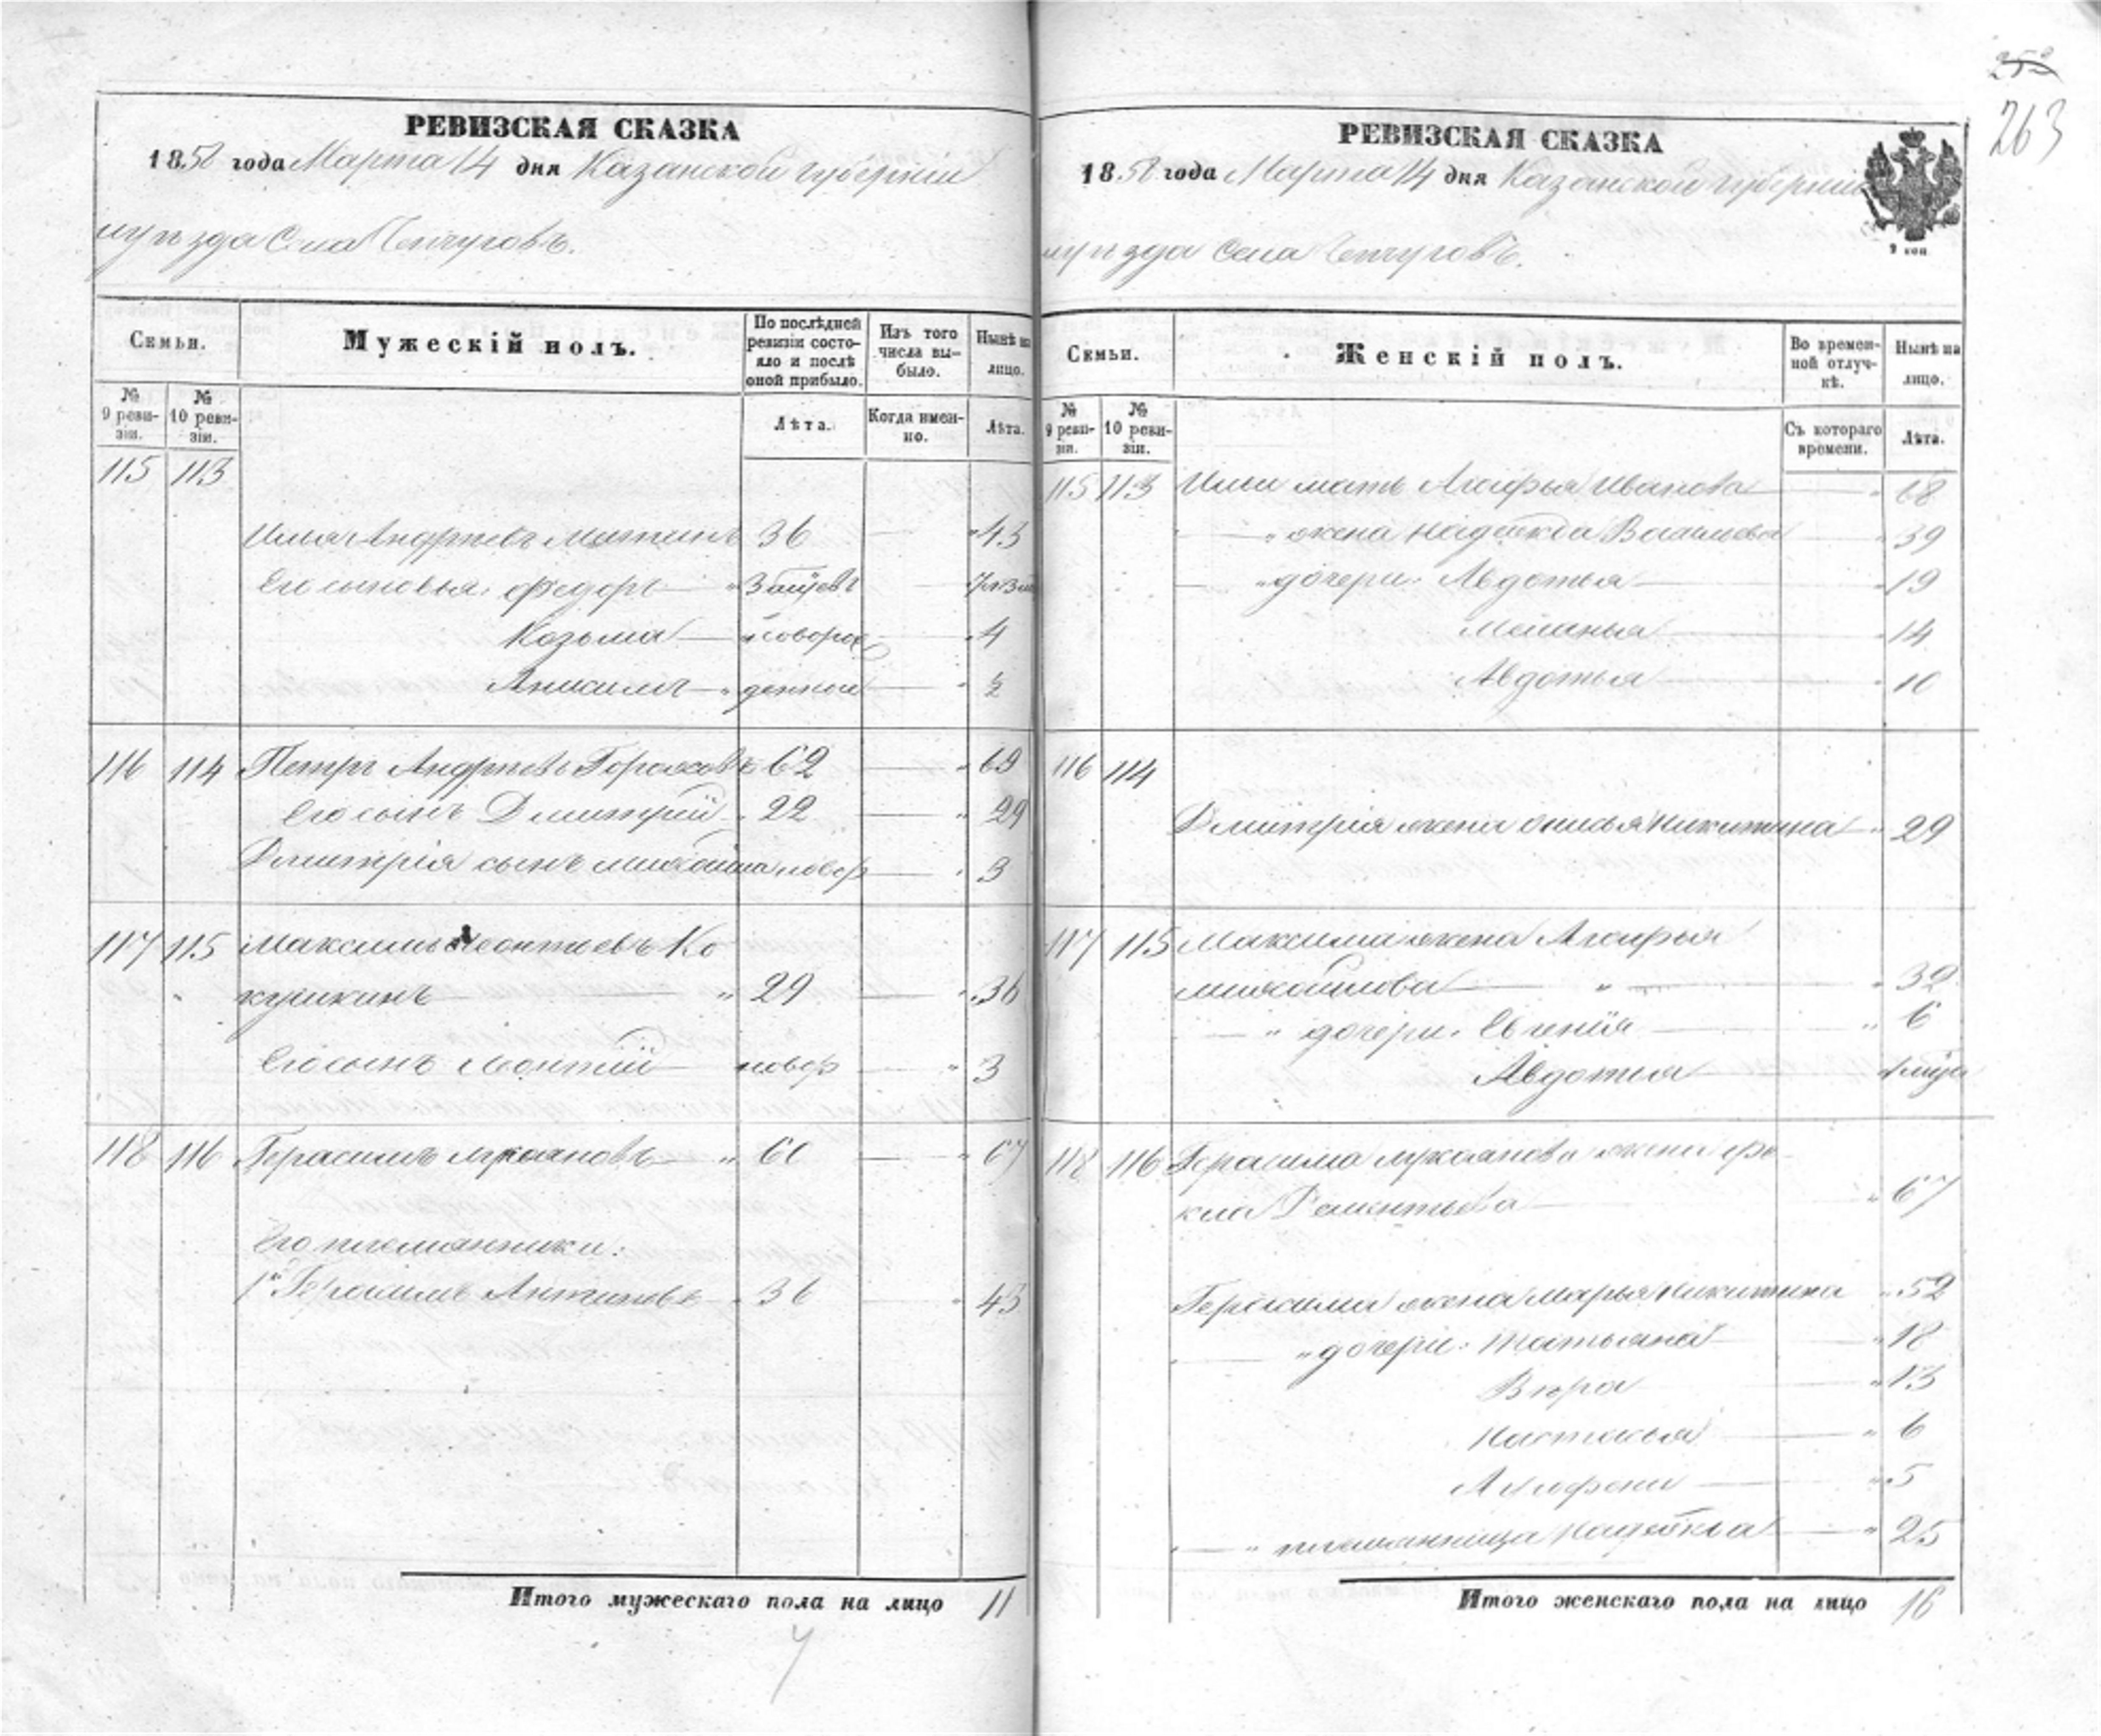 253
263
РЕВИЗСКАЯ СКАЗКА
1858 года Марта 14 дня Казанской губерніи
уѣзда Села
Семьи.
Мужескій полъ.
По послѣдней ревизіи состояло и послѣ оной прибыло.
Изъ того числа вы-было.
Нынѣ на лицо.
№ 9 реви-зіи.
№ 10 реви-зіи.
Лѣта.
Когда имен-но.
Лѣта.
115 113
Илья Андреевъ 36 43
Его сыновья: Федоръ 7
Козьма 4
Анисимъ
116 114 Петръ Андреевъ 62 69
Его сынъ Дмитрій 22 29
Дмитрія сынъ Михайла новор 3
117 115 Максимъ Леонтьевъ Ко
кушкинъ 29 36
Его сынъ Леонтій новор 3
118 116 Герасимъ Лукояновъ 60 67
Его племянники:
1й Герасимъ Антиповъ 36 43
Итого мужескаго пола на лицо 11
РЕВИЗСКАЯ СКАЗКА
1858 года Марта 14 дня Казанской губерніи
2 коп
уѣзда Села
Семьи.
Женскій полъ.
Во времен-ной отлуч-кѣ.
Нынѣ на лицо.
№ 9 реви-зіи.
№ 10 реви-зіи.
Съ котораго времени.
Лѣта.
115 113 Ильи мать Агафья Иванова 68
жена Надежда Васильева 39
дочери: Авдотья 19
Меланья 14
Авдотья 10
116 114
Дмитрія жена Никитина 29
117 115 Максима жена Агафья
Михайлова 32
дочери: Евгенія 6
Авдотья
118 116 Герасима Лукоянова жена Фе
кла 67
Герасима жена Марья Никитина 52
дочери: Татьяна 18
Вѣра 13
Настасья 6
5
племянница Надежда 25
Итого женскаго пола на лицо 16